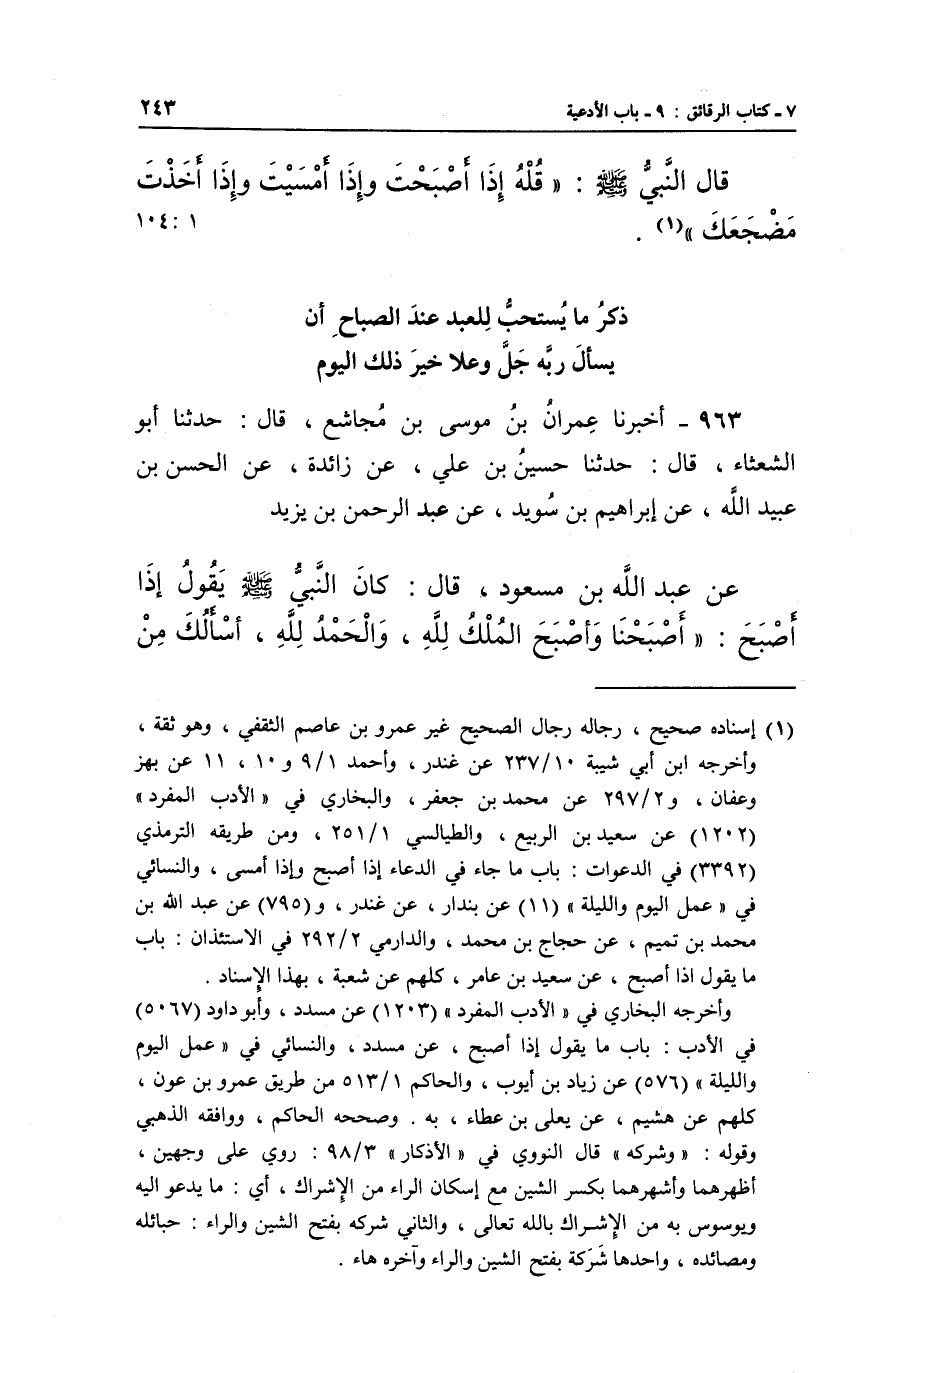 ٧ ـ كتاب الرقائق : ٩ ـ باب الأدعية ٢٤٣
قال النَّبيُّ ﷺ : « قُلْهُ إِذَا أَصْبَحْتَ وإِذَا أَمْسَيْتَ وإِذَا أَخَذْتَ
مَضْجَعَكَ »(١) . ١ : ١٠٤
ذكرُ ما يُستحبُّ لِلعبد عندَ الصباحِ أن
يسألَ ربَّه جَلَّ وعلا خيرَ ذلك اليوم
٩٦٣ ـ أخبرنا عِمرانُ بنُ موسى بن مُجاشع ، قال : حدثنا أبو
الشعثاء ، قال : حدثنا حسينُ بن علي ، عن زائدة ، عن الحسن بن
عبيد اللَّه ، عن إبراهيم بن سُويد ، عن عبد الرحمن بن يزيد
عن عبد اللَّه بن مسعود ، قال : كانَ النَّبيُّ ﷺ يَقُولُ إِذَا
أَصْبَحَ : « أَصْبَحْنَا وَأَصْبَحَ المُلْكُ لِلَّهِ ، وَالْحَمْدُ لِلَّهِ ، أَسْأَلُكَ مِنْ
(١) إسناده صحيح ، رجاله رجال الصحيح غير عمرو بن عاصم الثقفي ، وهو ثقة ،
وأخرجه ابن أبي شيبة ٢٣٧/١٠ عن غندر ، وأحمد ٩/١ و١٠ ، ١١ عن بهز
وعفان ، و٢٩٧/٢ عن محمد بن جعفر ، والبخاري في « الأدب المفرد »
(١٢٠٢) عن سعيد بن الربيع ، والطيالسي ٢٥١/١ ، ومن طريقه الترمذي
(٣٣٩٢) في الدعوات : باب ما جاء في الدعاء إذا أصبح وإذا أمسى ، والنسائي
في « عمل اليوم والليلة » (١١) عن بندار ، عن غندر ، و(٧٩٥) عن عبد الله بن
محمد بن تميم ، عن حجاج بن محمد ، والدارمي ٢٩٢/٢ في الاستئذان : باب
ما يقول اذا أصبح ، عن سعيد بن عامر ، كلهم عن شعبة ، بهذا الإسناد .
وأخرجه البخاري في « الأدب المفرد » (١٢٠٣) عن مسدد ، وأبو داود (٥٠٦٧)
في الأدب : باب ما يقول إذا أصبح ، عن مسدد ، والنسائي في « عمل اليوم
والليلة » (٥٧٦) عن زياد بن أيوب ، والحاكم ٥١٣/١ من طريق عمرو بن عون ،
كلهم عن هشيم ، عن يعلى بن عطاء ، به . وصححه الحاكم ، ووافقه الذهبي
وقوله : « وشركه » قال النووي في « الأذكار » ٩٨/٣ : روي على وجهين ،
أظهرهما وأشهرهما بكسر الشين مع إسكان الراء من الإشراك ، أي : ما يدعو اليه
ويوسوس به من الإشراك بالله تعالى ، والثاني شركه بفتح الشين والراء : حبائله
ومصائده ، واحدها شَرَكة بفتح الشين والراء وآخره هاء .